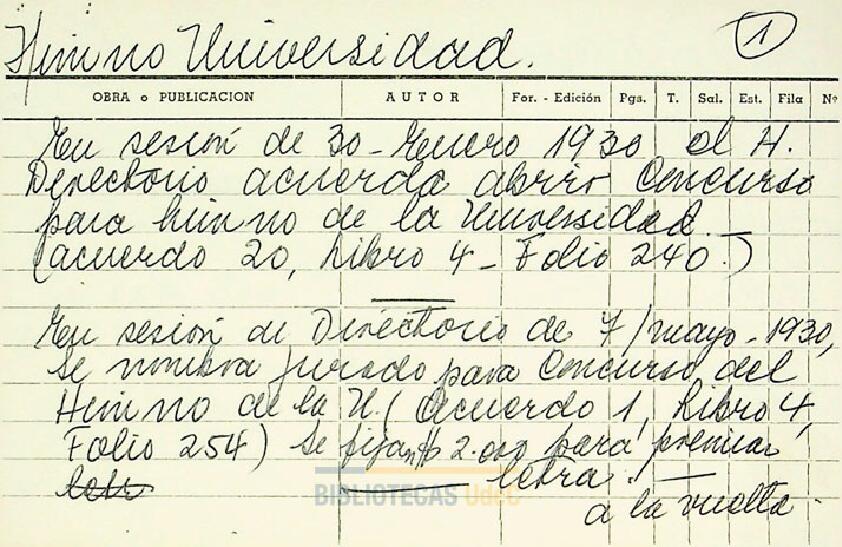 Himno Universidad.
1
OBRA o PUBLICACION AUTOR For. - Edición Pgs. T. Sal. Est. Fila Nº
En sesión de 30 - Enero 1930 el H.
Directorio acuerda abrir Concurso
para himno de la Universidad. _
(acuerdo 20, Libro 4 - Folio 240.)
En sesión de Directorio de 7/mayo - 1930,
se nombra jurado para Concurso del
Himno de la U. (Acuerdo 1, Libro 4,
Folio 254) se fijan $ 2.000 para premiar
letra. _
BIBLIOTECAS UdeC
a la vuelta.